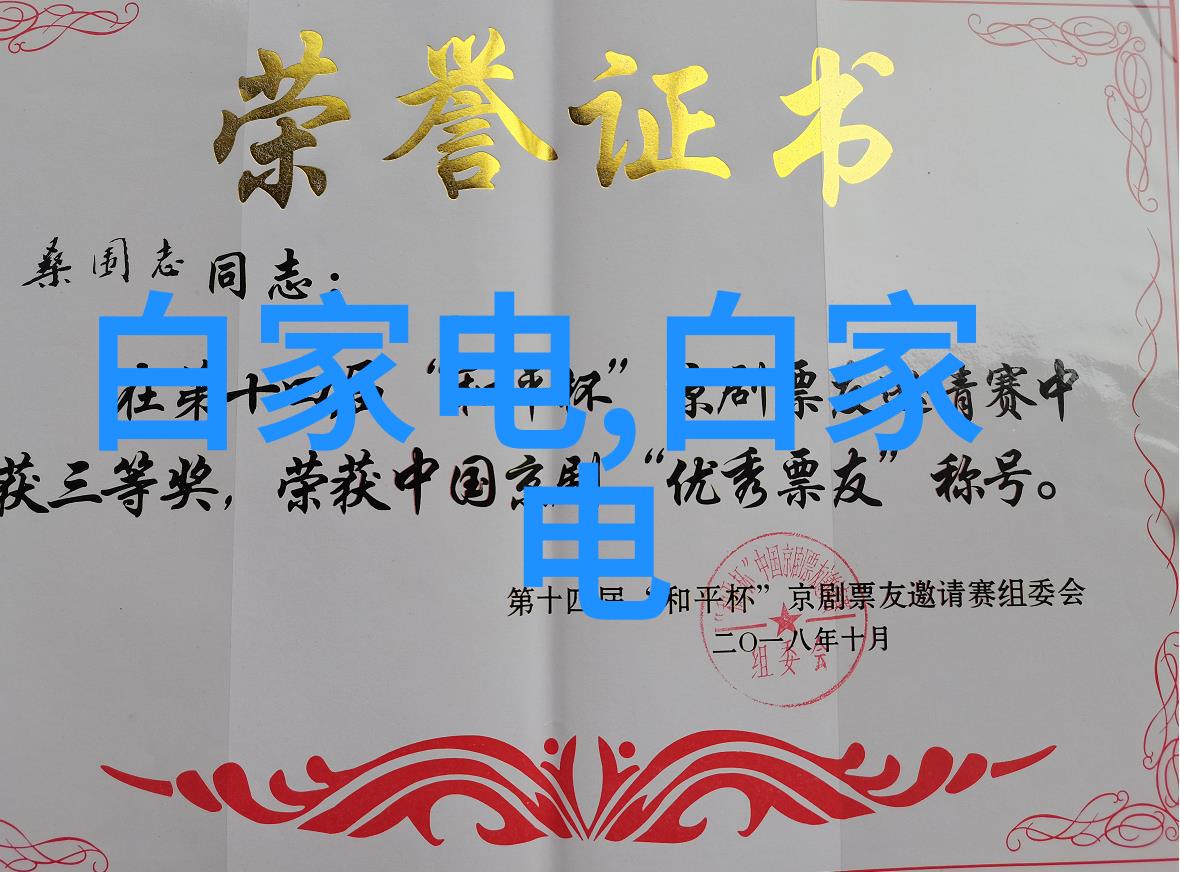 荣誉证书
桑国志 同志：
白家电,白家
电
在第十四届“和平杯”京剧票友邀请赛中
获三等奖，荣获中国京剧“优秀票友”称号。
第十四届“和平杯”京剧票友邀请赛组委会
二〇一八年十月
“和平杯”中国京剧票友邀请赛
组委会